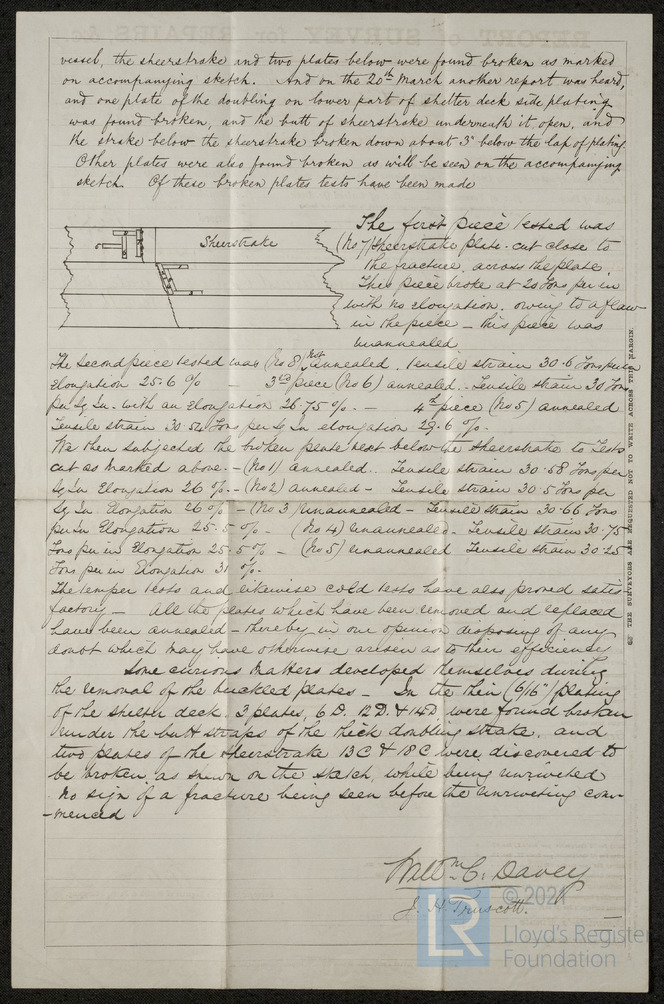 vessel, the sheerstrake and two plates below were found broken as marked
on accompanying sketch. And on the 20th March another report was heard,
and one plate of the doubling on lower part of shelter deck side plating
was found broken, and the butt of sheerstrake underneath it, open, and
the strake below the sheerstrake broken down about 3" below the lap of plating
Other plates were also found broken as will be seen on the accompanying
sketch. Of these broken plates tests have been made
Sheerstrake
The first piece tested was
(No 7) Sheerstrake plate cut close to
the fracture, across the plate.
This piece broke at 20 Tons per in
with no elongation, owing to a flaw
in the piece – this piece was
unannealed
The second piece tested was (No 8) not annealed, tensile strain 30.6 Tons per in
Elongation 25.6 % – 3rd piece (No 6) annealed. Tensile strain 30 Tons
per Sq In. with an Elongation 26.75 %. – 4th piece (No 5) annealed
Tensile strain 30.52 Tons per Sq In elongation 29.6 %.
We then subjected the broken plate next below the Sheerstrake to Tests
cut as marked above. – (No 1) annealed. Tensile strain 30.58 Tons per
Sq In Elongation 26 %. – (No 2) annealed – Tensile strain 30.5 Tons per
Sq In Elongation 26 % – (No 3) unannealed – Tensile strain 30.66 Tons
per in Elongation 25.5 %. – (No 4) unannealed – Tensile strain 30.75
Tons per in Elongation 25.5 % – (No 5) unannealed Tensile strain 30.25
Tons per in Elongation 31 %.
The temper tests and likewise cold tests have also proved satis
factory – All the plates which have been removed and replaced
have been annealed – thereby in our opinion disposing of any
doubt which may have otherwise arisen as to their efficiency
Some curious matters developed themselves during
the removal of the buckled plates – In the thin (6/16") plating
of the shelter deck 3 plates, 6 D. 12 D. & 14 D were found broken
under the butt straps of the thick doubling strake, and
two plates of the sheerstrake 13 C & 18 C were discovered to
be broken, as shewn on the sketch, while being unriveted
no sign of a fracture being seen before the unriveting com-
-menced
Willm C. Davey
J. H. Truscott.
THE SURVEYORS ARE REQUESTED NOT TO WRITE ACROSS THE MARGIN.
REPORT of SURVEY for REPAIRS, &c
LR
© 2021
Lloyd's Register
Foundation